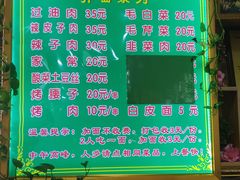 过油肉 35元 毛白菜 20元
辣皮子肉 35元 毛芹菜 20元
辣子肉 30元 韭菜肉 20元
家常 20元
酸菜土豆丝 20元
烤腰子 20元/串
烤肉 10元/串 白皮面 5元
温馨提示：加面不收费；打包收3元/份。
2人吃一面，加收3元/份。
中午高峰，人多请点相同菜品，上餐快！